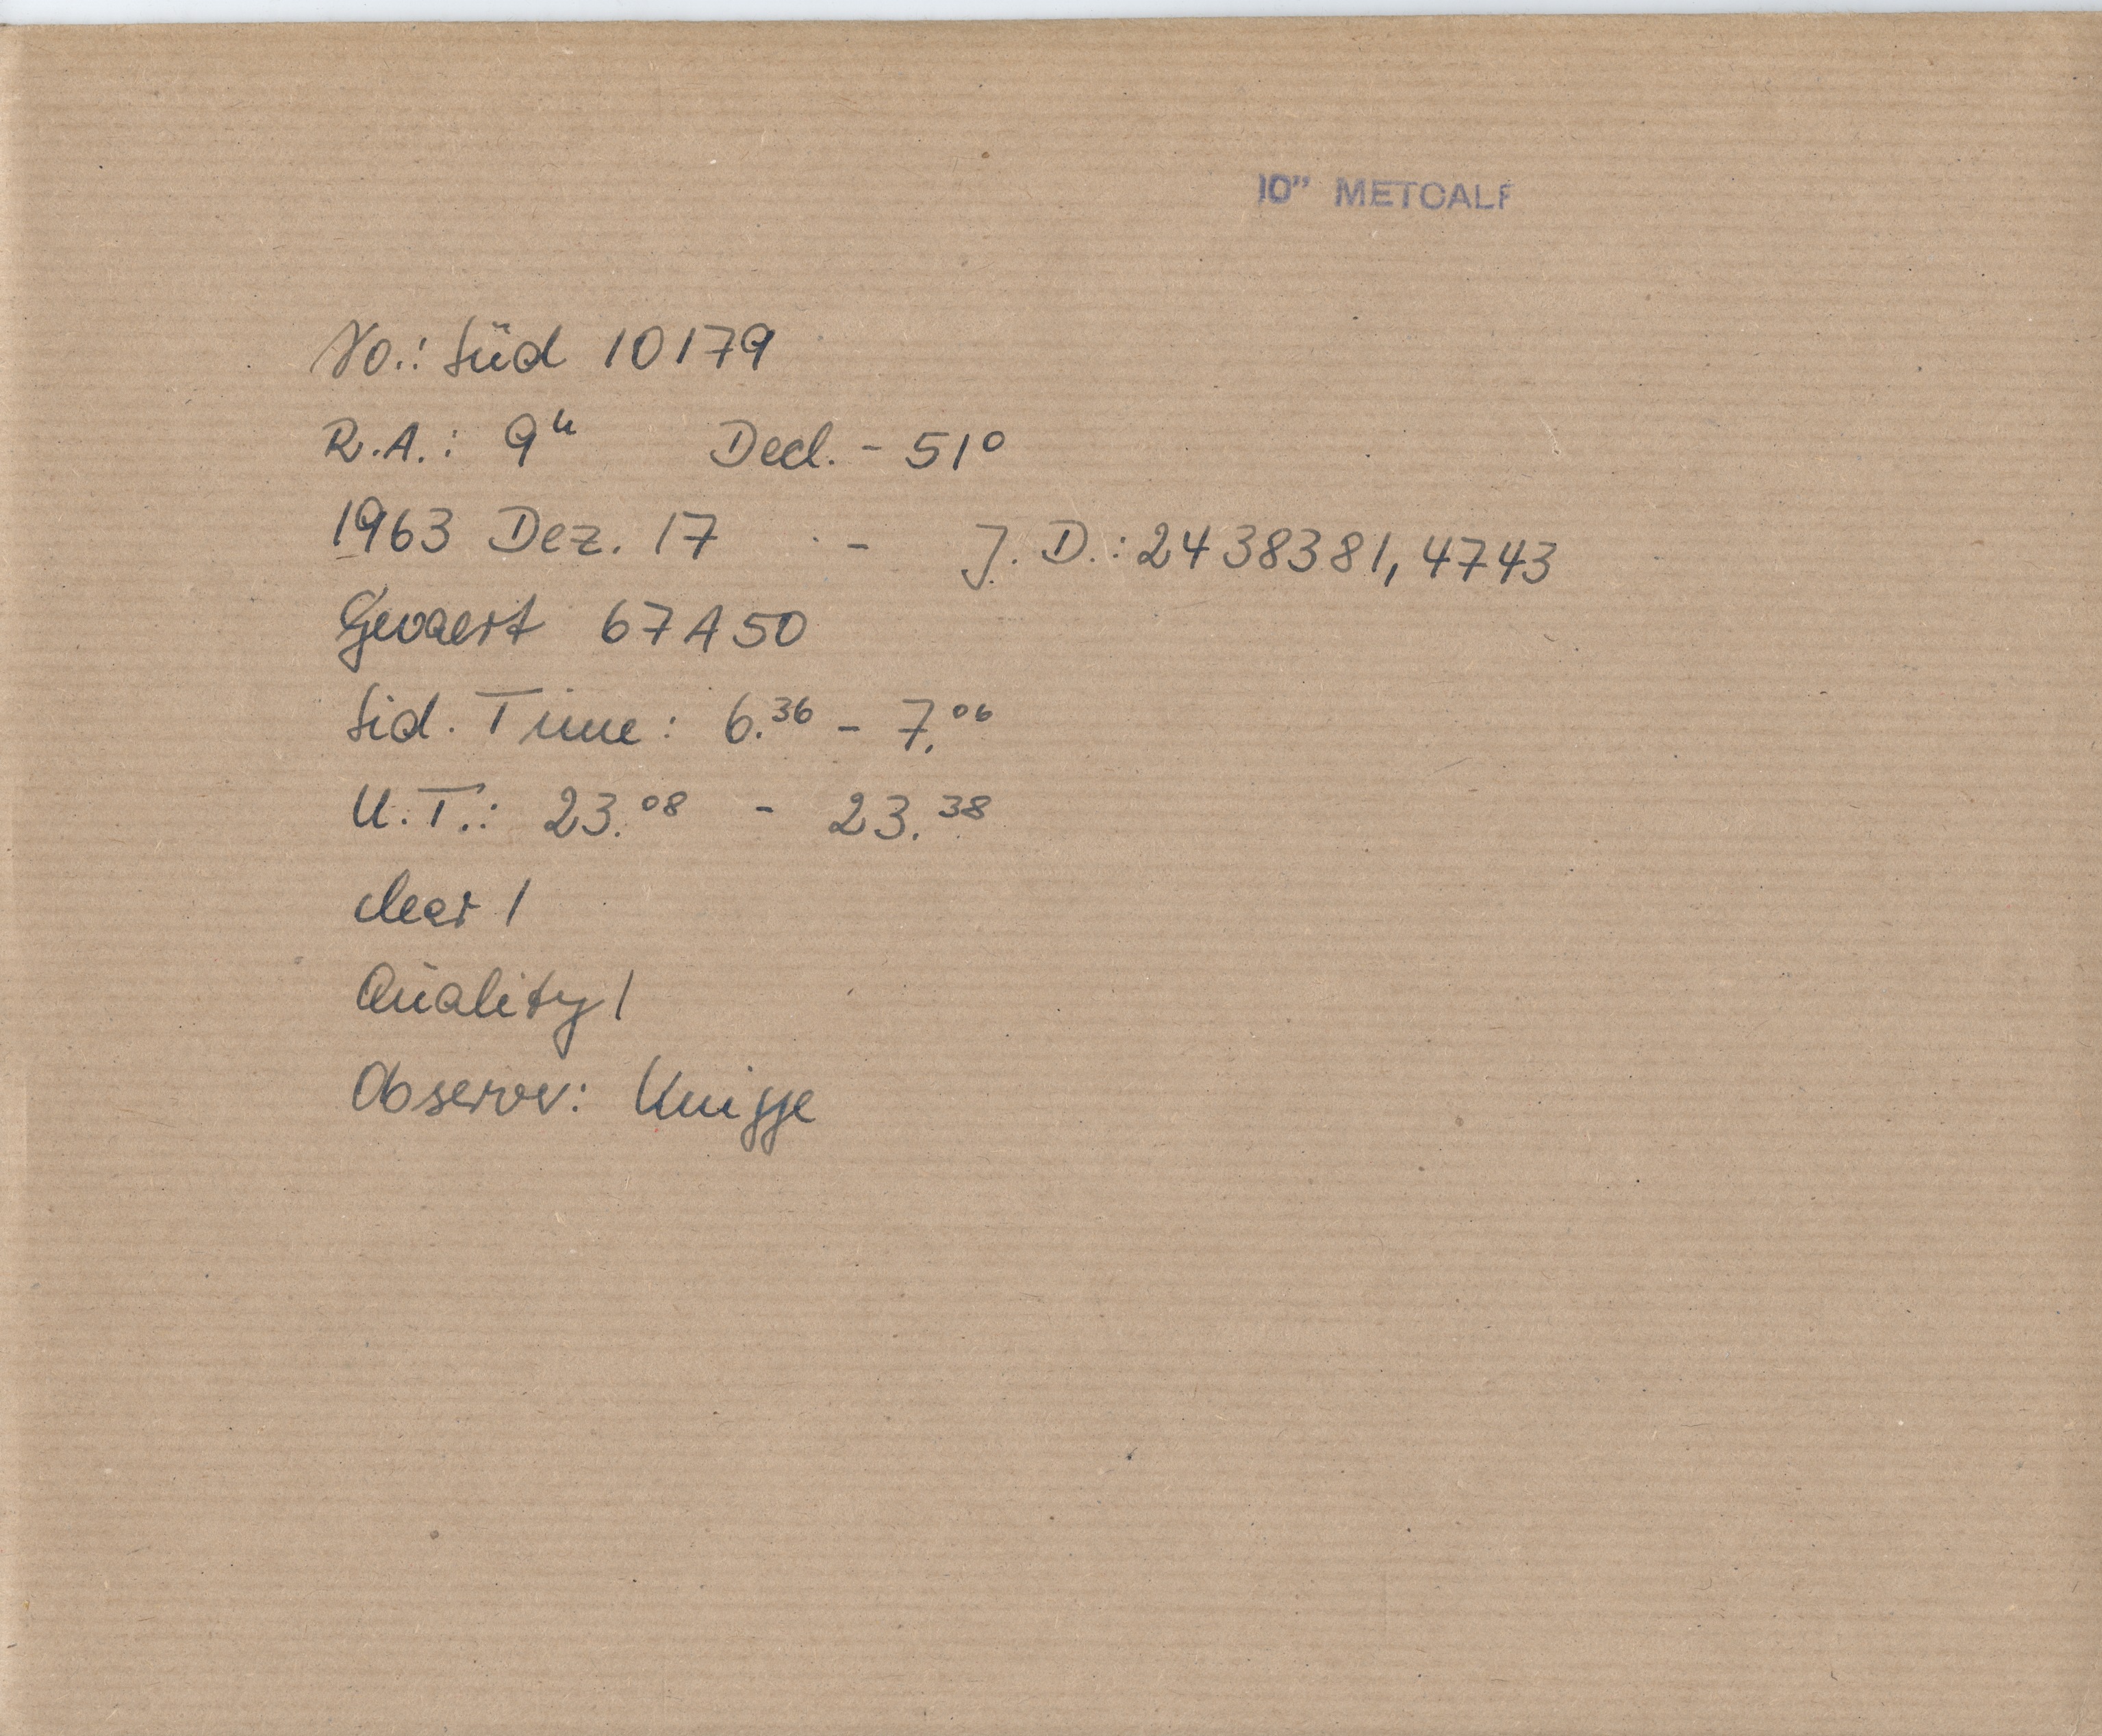 10" METCALF
No.: Süd 10179
R.A.: 9ʰ Decl. - 51°
1963 Dez. 17 - J.D.: 2438381,4743
Gevaert 67A50
Sid. Time: 6.³⁶ - 7.⁰⁶
U.T.: 23.⁰⁸ - 23.³⁸
clear 1
Quality 1
Observer: Knigge